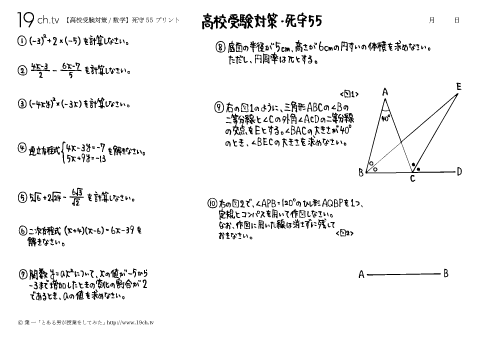 19ch.tv 【高校受験対策/数学】死守55 プリント
高校受験対策・死守55
月 日
① (-3)²+2×(-5)を計算しなさい。
② 4x-3/2 - 6x-7/5 を計算しなさい。
③ (-4xy)²×(-3x)を計算しなさい。
④ 連立方程式{4x-3y=-7 5x+9y=-13 を解きなさい。
⑤ 5√6+2√24-6√3/√2 を計算しなさい。
⑥ 二次方程式(x+4)(x-6)=6x-39を
解きなさい。
⑦ 関数y=ax²について、xの値が-5から
-3まで増加したときの変化の割合が2
であるとき、aの値を求めなさい。
⑧ 底面の半径が5cm、高さが6cmの円すいの体積を求めなさい。
ただし、円周率はπとする。
⑨ 右の図1のように、三角形ABCの∠Bの
二等分線と∠Cの外角∠ACDの二等分線
の交点をEとする。∠BACの大きさが40°
のとき、∠BECの大きさを求めなさい。
<図1>
A
E
40°
B
C
D
⑩ 右の図2で、∠APB=120°のひし形AQBPを1つ、
定規とコンパスを用いて作図しなさい。
なお、作図に用いた線は消さずに残して
おきなさい。
<図2>
A
B
© 葉一「とある男が授業をしてみた」http://www.19ch.tv